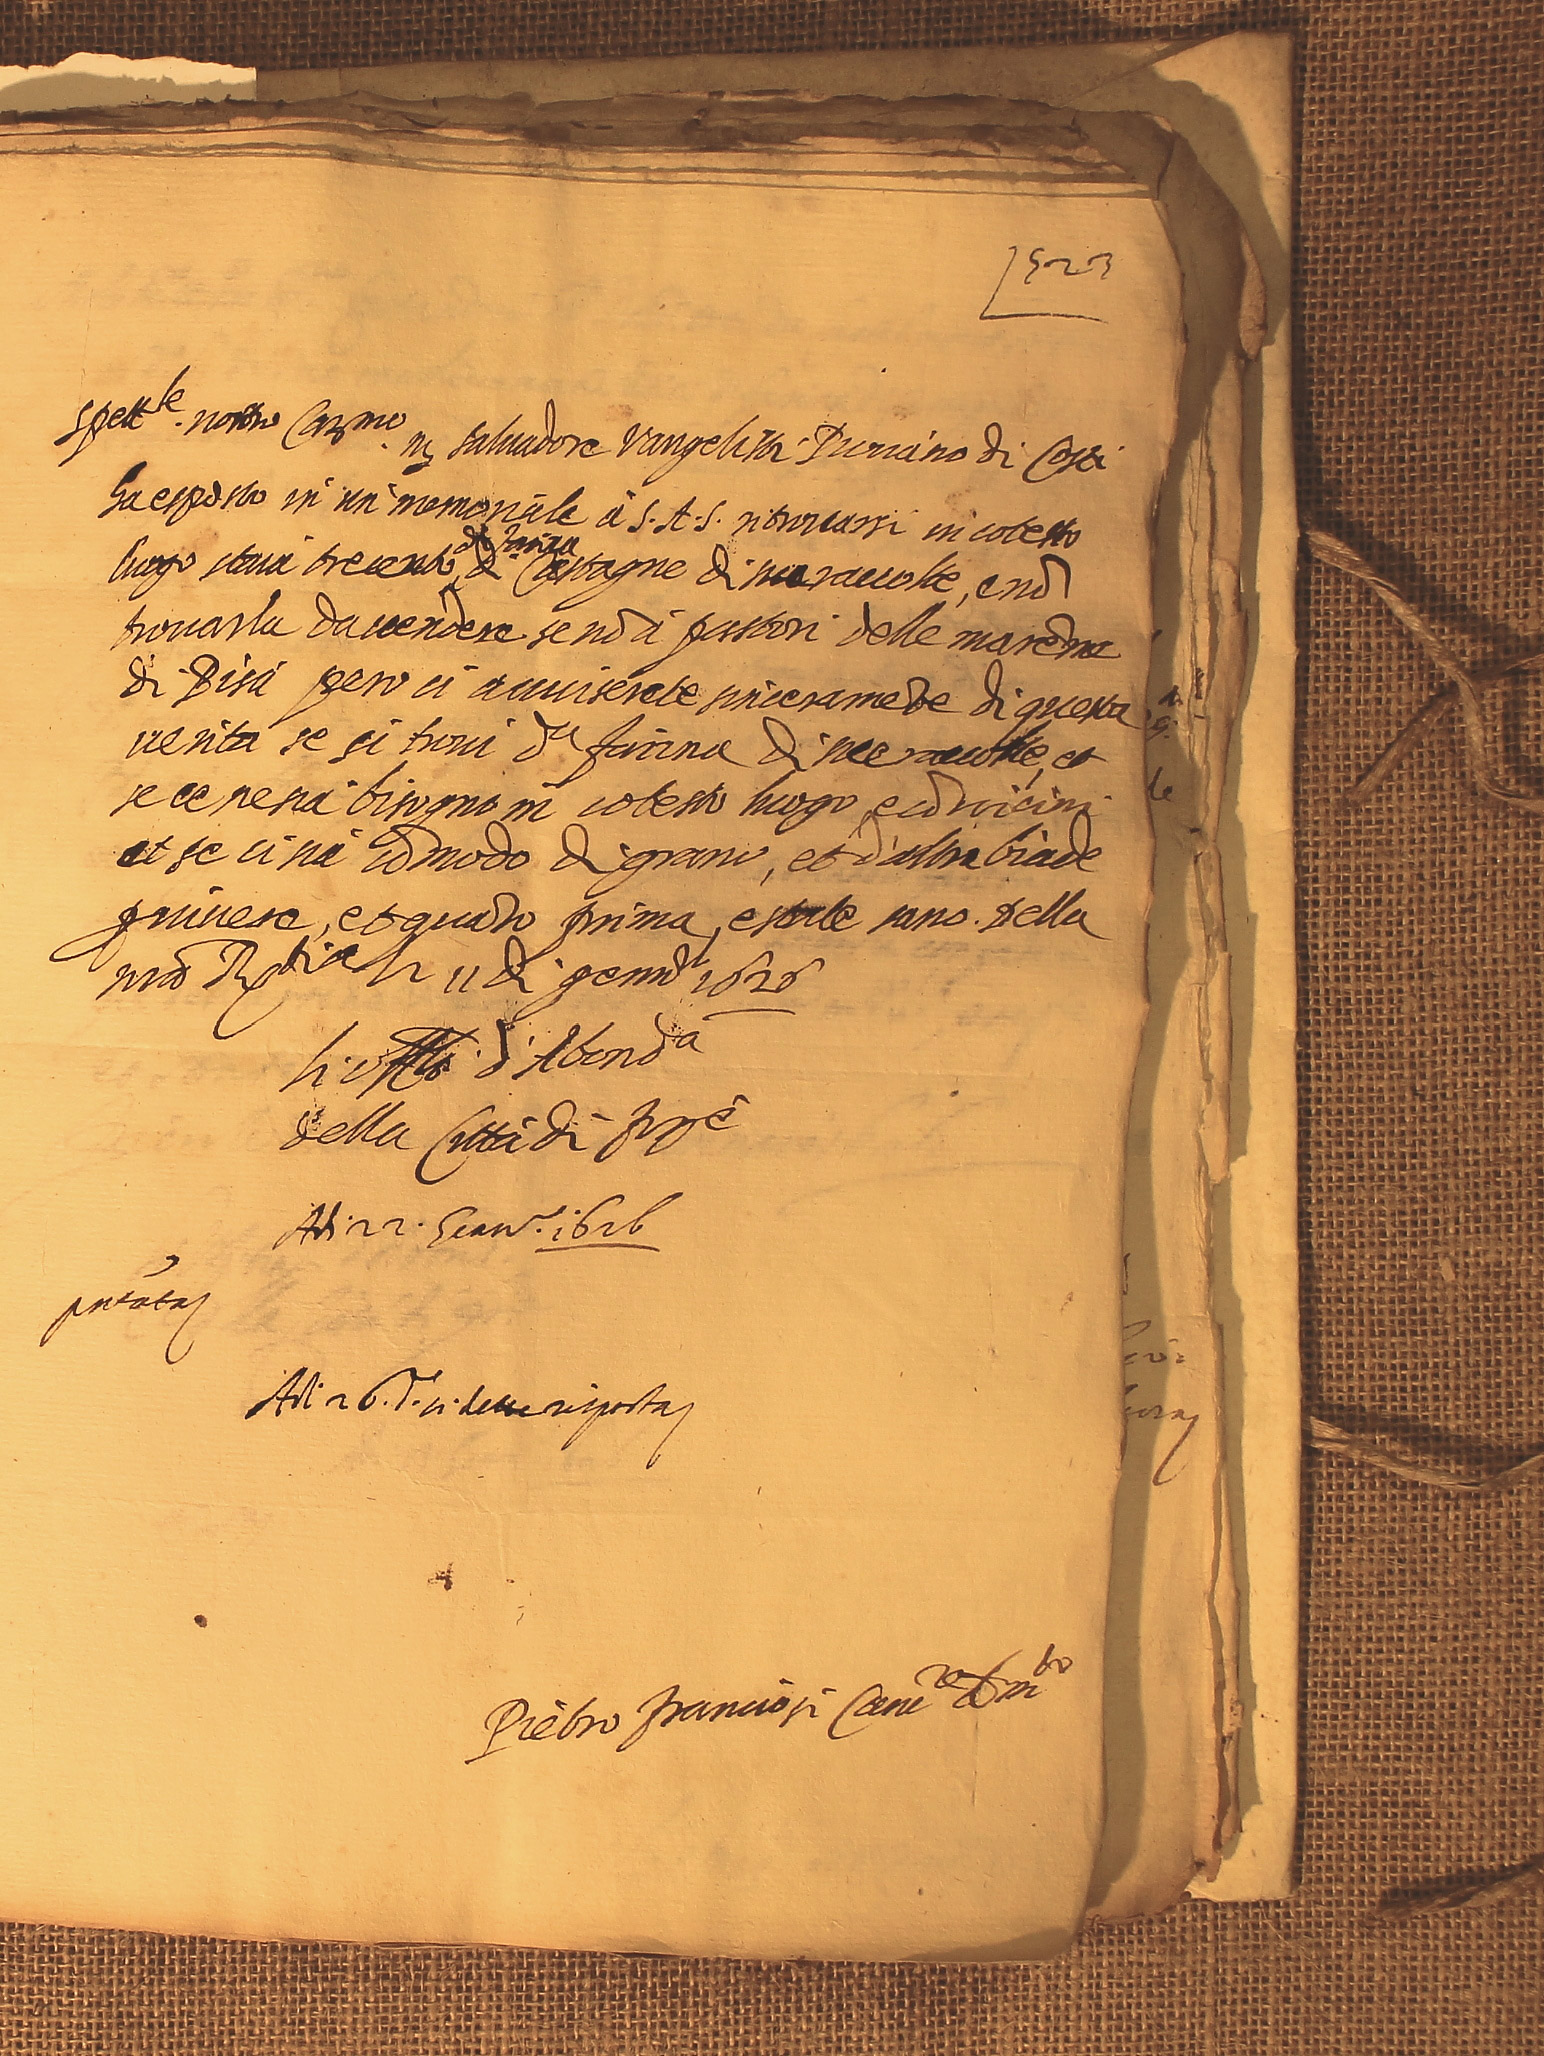 523
Spett.le nostro Carmo. m. Salvadore Vangelisti Pievano di Costì
ha esposto in un memoriale à S.A.S. ritrovarsi in cotesto
luogo staia trecento di farina di Castagne di sue raccolte, e nō
trovarla da vendere se nō à pastori delle marēme
di Pisa però ci avviserete sinceramēte di questa
verità se si trovi d.a farina di sue raccolte, et
se ce ne sia bisogno in cotesto luogo, e cōvicini
et se ci sia cōmodo di grano, et d'altre biade
p vivere, et quāto prima, e state sano. Della
nrā Resid.a li 11 di genn.o 1626
li offli d'Abond.a
della Città di Firzē
Adi 22. Genn.o 1626
pntata
Adi 26. d.o si dette risposta
Pietro Franciosi Canc.re d. m.to